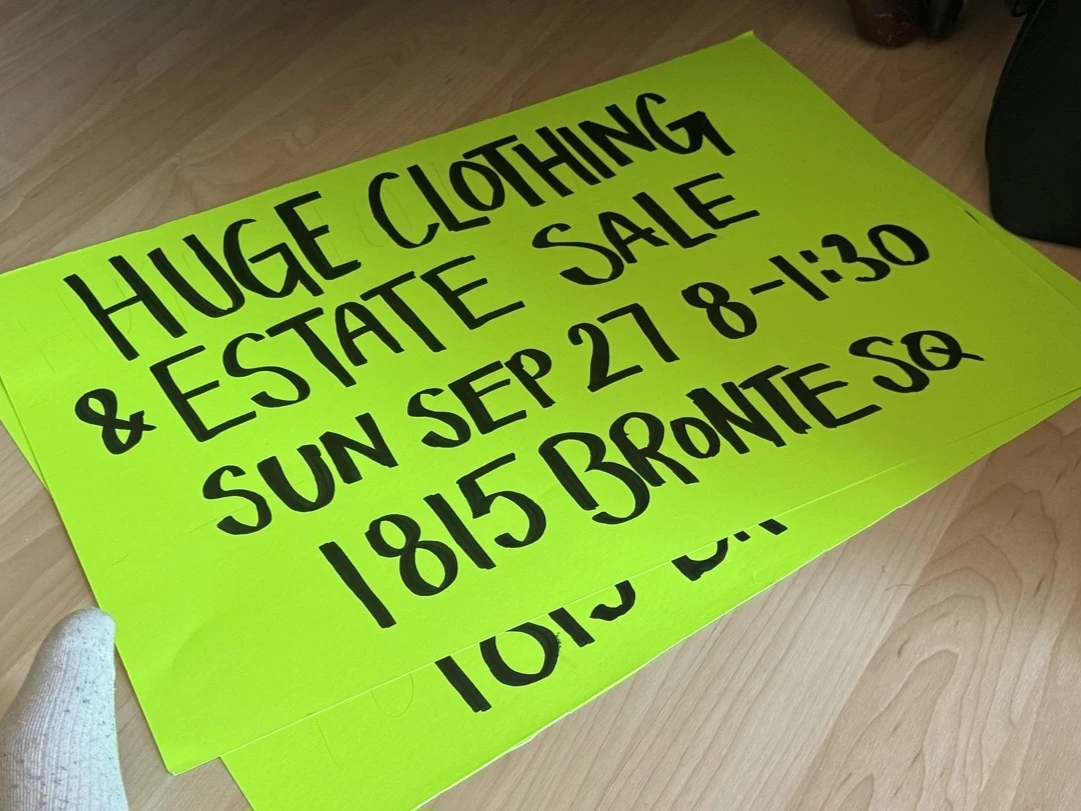 HUGE CLOTHING
& ESTATE SALE
SUN SEP 27 8-1:30
1815 BRONTE SQ